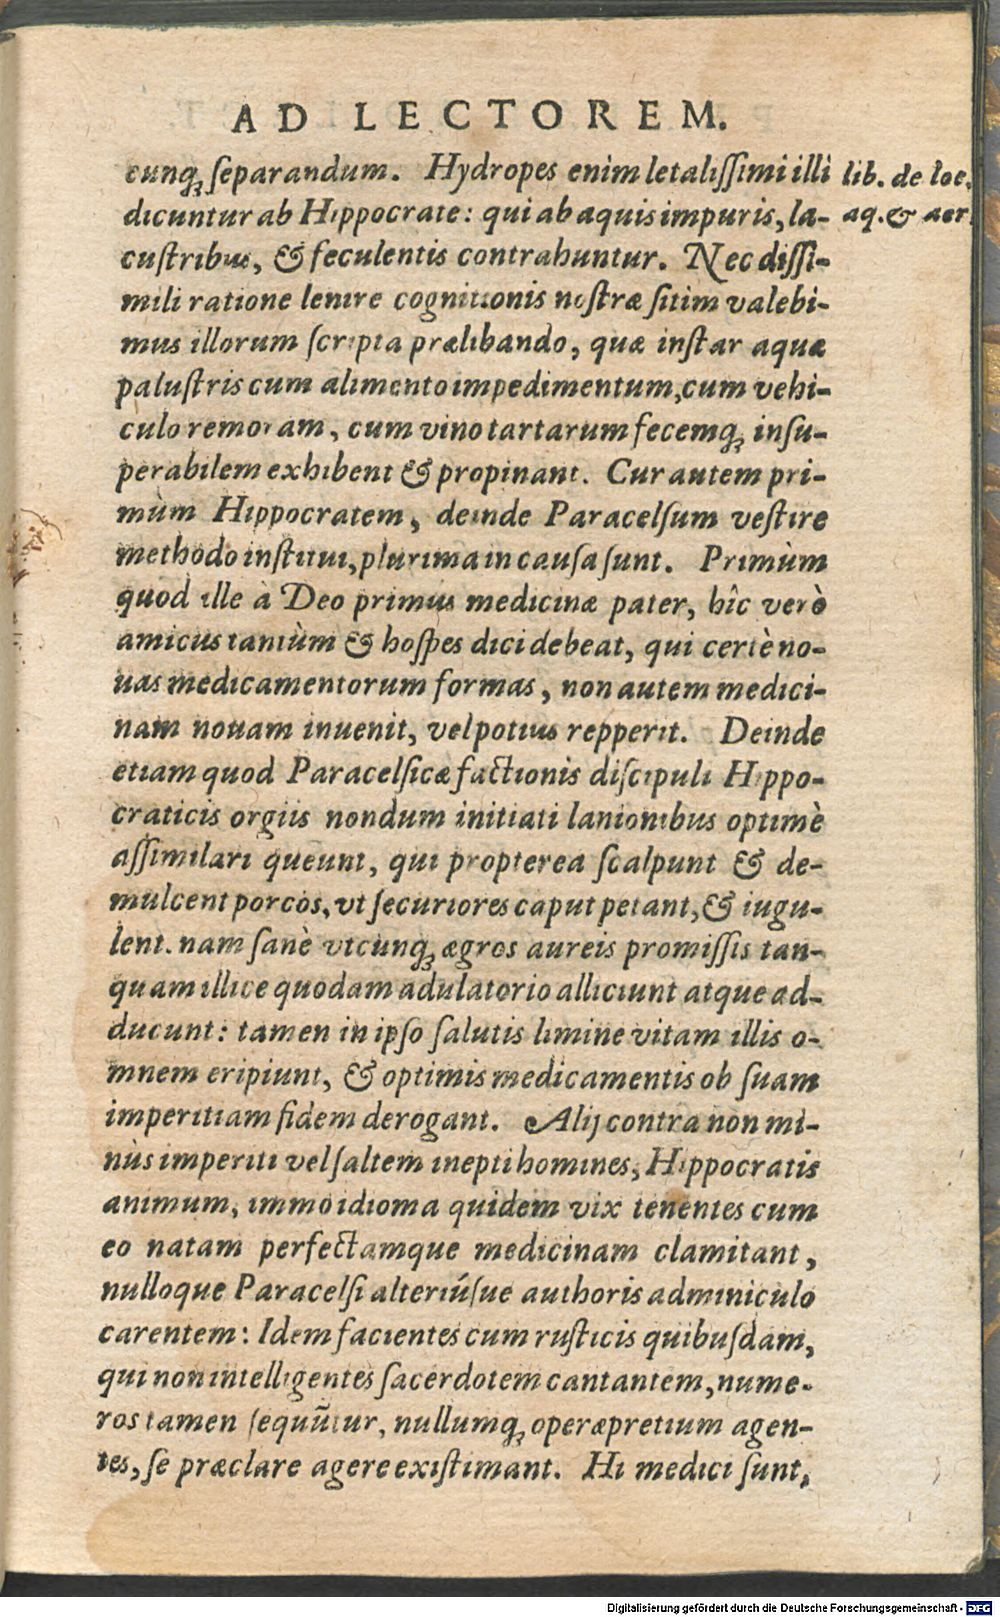 AD LECTOREM.
cunqꝫ ſeparandum. Hydropes enim letaliſſimi illi
lib. de loc.
dicuntur ab Hippocrate: qui ab aquis impuris, la-
aq. & aer
cuſtribus, & feculentis contrahuntur. Nec diſſi-
mili ratione lenire cognitionis noſtræ ſitim valebi-
mus illorum ſcripta prælibando, quæ inſtar aquæ
paluſtris cum alimento impedimentum, cum vehi-
culo remoram, cum vino tartarum fecemqꝫ inſu-
perabilem exhibent & propinant. Cur autem pri-
mùm Hippocratem, deinde Paracelſum veſtire
methodo inſtitui, plurima in cauſa ſunt. Primùm
quod ille à Deo primus medicinæ pater, hîc verò
amicus tantùm & hoſpes dici debeat, qui certè no-
uas medicamentorum formas, non autem medici-
nam nouam inuenit, vel potius repperit. Deinde
etiam quod Paracelſicæ factionis diſcipuli Hippo-
craticis orgiis nondum initiati lanionibus optimè
aſſimilari queunt, qui propterea ſcalpunt & de-
mulcent porcos, vt ſecuriores caput petant, & iugu-
lent. nam ſanè vtcunqꝫ ægros aureis promiſſis tan-
quam illice quodam adulatorio alliciunt atque ad-
ducunt: tamen in ipſo ſalutis limine vitam illis o-
mnem eripiunt, & optimis medicamentis ob ſuam
imperitiam fidem derogant. Alij contra non mi-
nùs imperiti vel ſaltem inepti homines, Hippocratis
animum, immo idioma quidem vix tenentes cum
eo natam perfectamque medicinam clamitant,
nulloque Paracelſi alteriúſue authoris adminiculo
carentem: Idem facientes cum ruſticis quibuſdam,
qui non intelligentes ſacerdotem cantantem, nume-
ros tamen ſequũtur, nullumqꝫ operæpretium agen-
tes, ſe præclare agere exiſtimant. Hi medici ſunt,
Digitalisierung gefördert durch die Deutsche Forschungsgemeinschaft - DFG